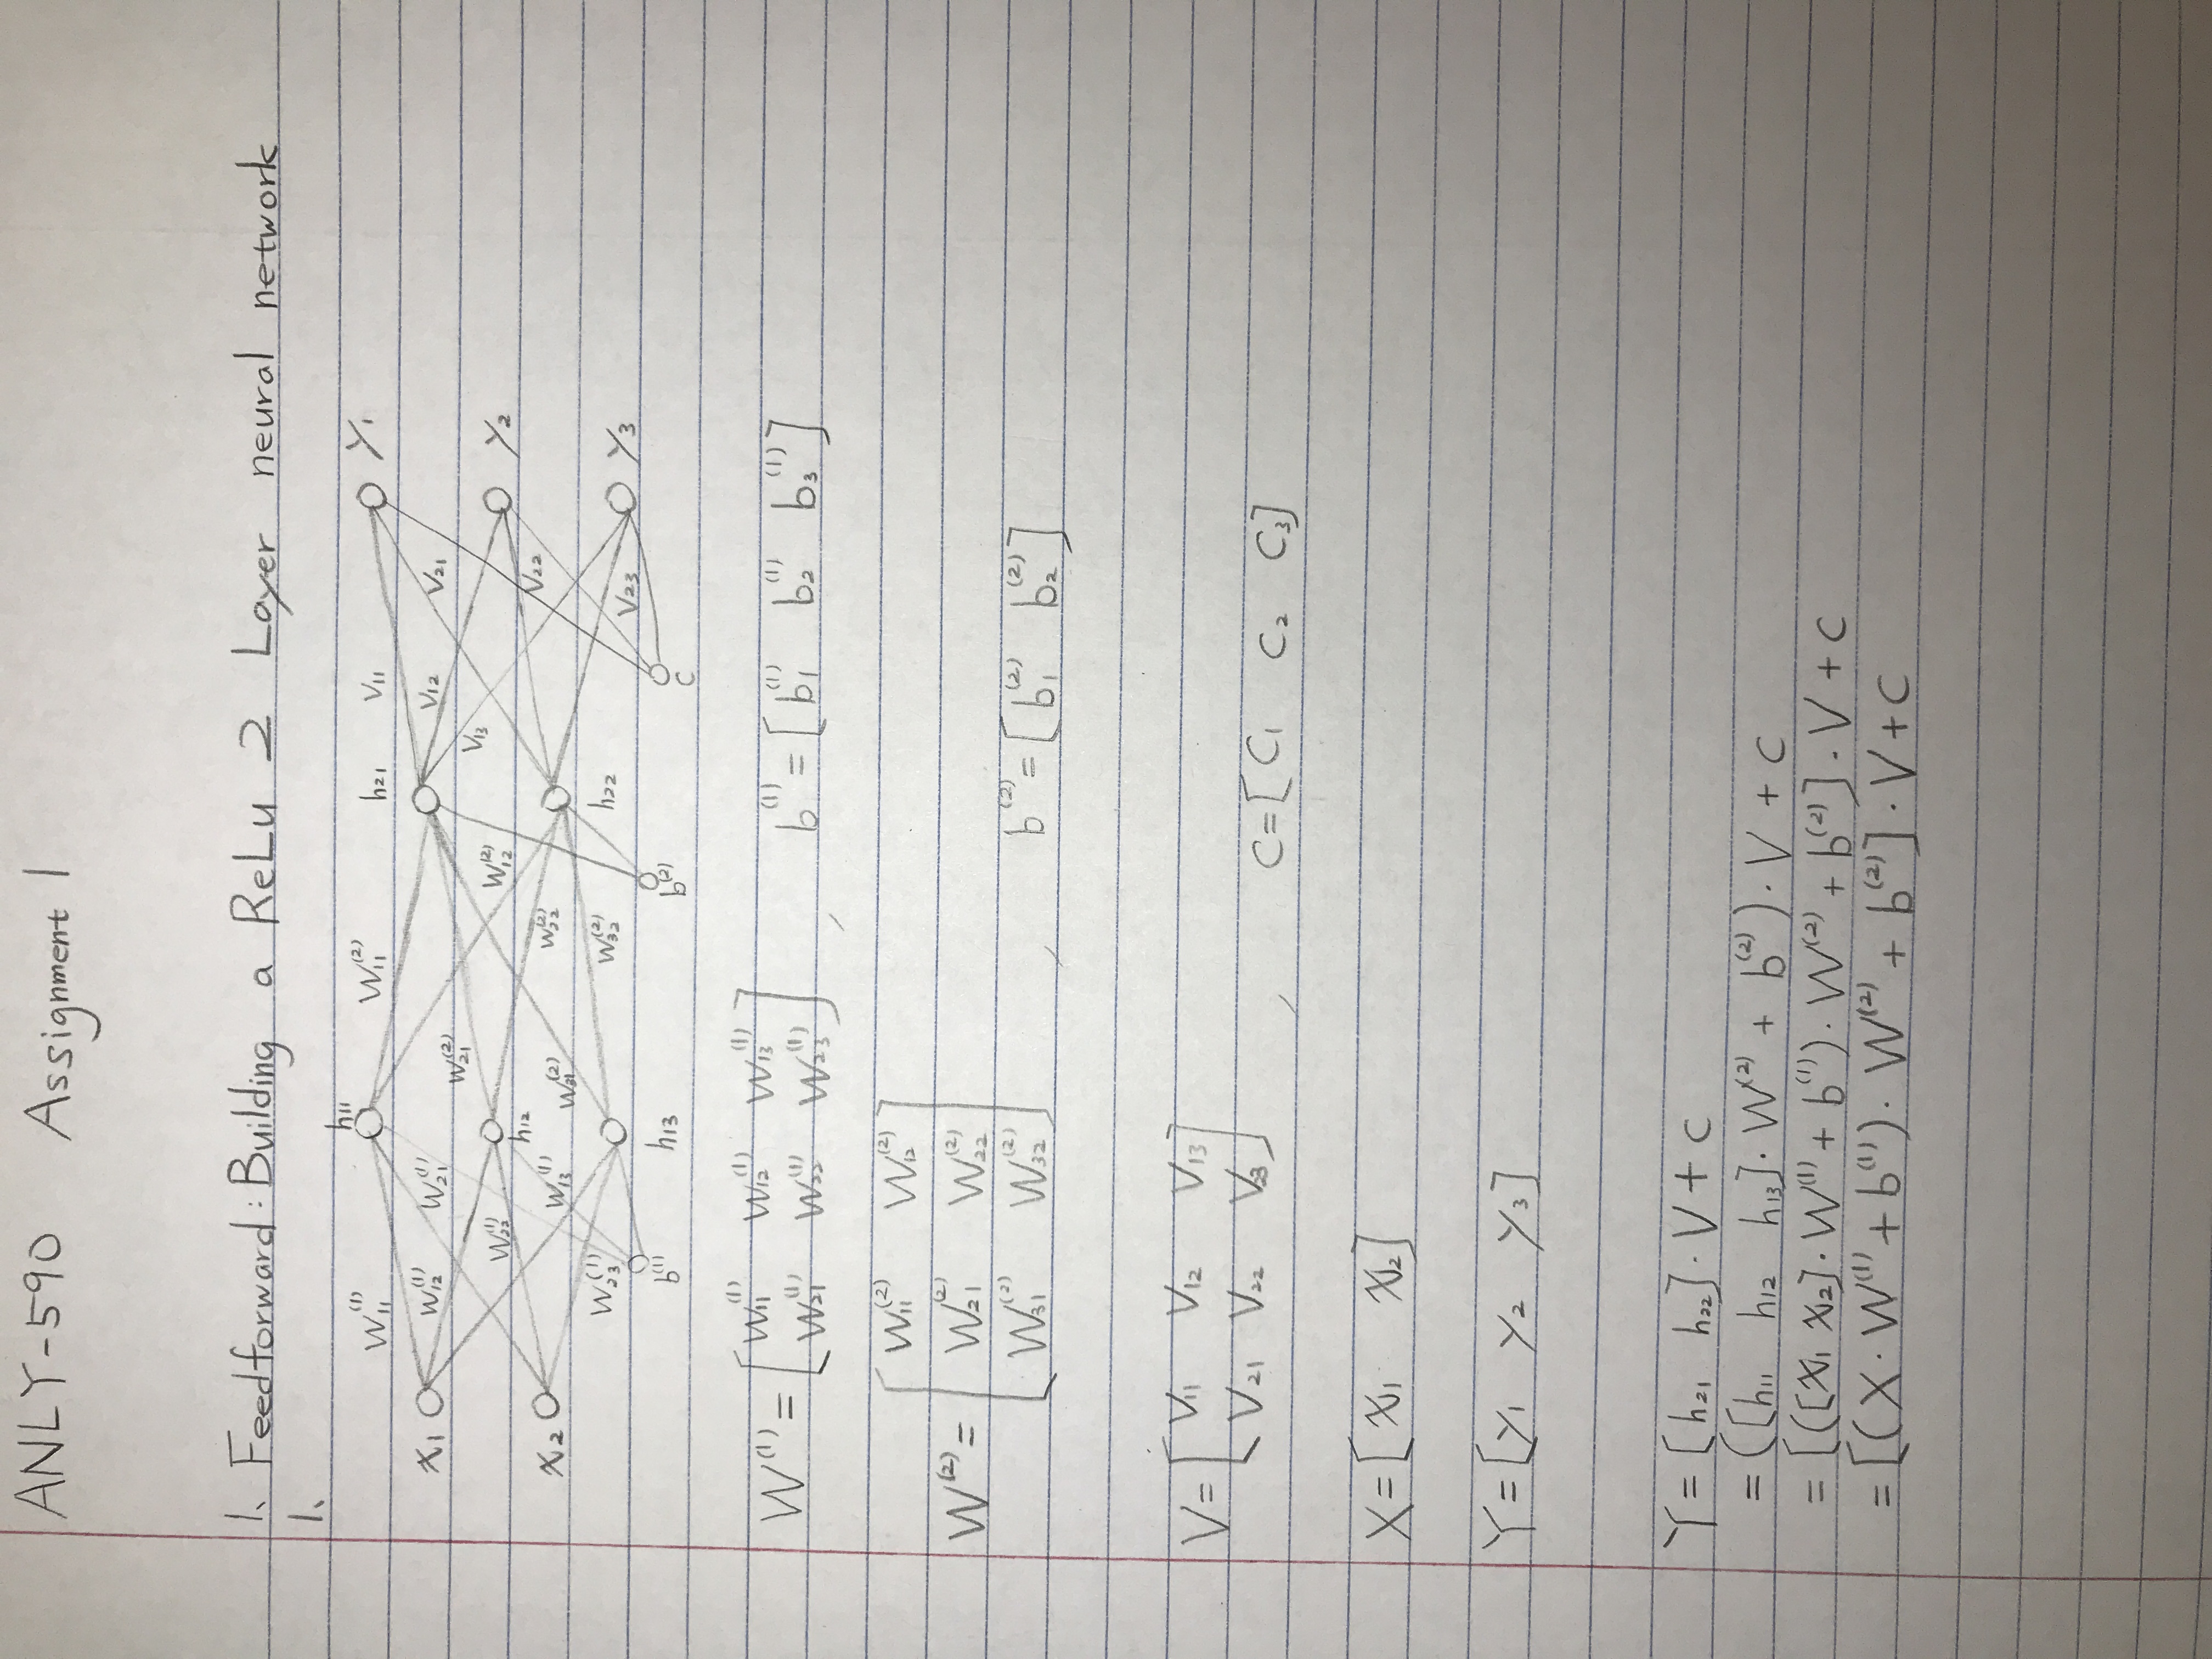 ANLY-590 Assignment 1
1. Feedforward: Building a ReLu 2 Layer neural network
1.
h11
W11^(1) W11^(2) h21 V11 y1
x1 W12^(1) W21^(1) W21^(2) V12 V21
V13
W22^(1) W12^(2) y2
h12
x2 W13^(1) W31^(2) W22^(2) V22
W23^(1) W32^(2) h22 V23 y3
b^(1) h13 b^(2) c
W^(1) = [ W11^(1) W12^(1) W13^(1)
W21^(1) W22^(1) W23^(1) ] , b^(1) = [ b1^(1) b2^(1) b3^(1) ]
W^(2) = [ W11^(2) W12^(2)
W21^(2) W22^(2)
W31^(2) W32^(2) ] , b^(2) = [ b1^(2) b2^(2) ]
V = [ V11 V12 V13
V21 V22 V23 ] , C = [ C1 C2 C3 ]
X = [ x1 x2 ]
Y = [ y1 y2 y3 ]
Y = [ h21 h22 ] · V + C
= ([ h11 h12 h13 ] · W^(2) + b^(2)) · V + C
= [([ x1 x2 ] · W^(1) + b^(1)) · W^(2) + b^(2)] · V + C
= [(X · W^(1) + b^(1)) · W^(2) + b^(2)] · V + C